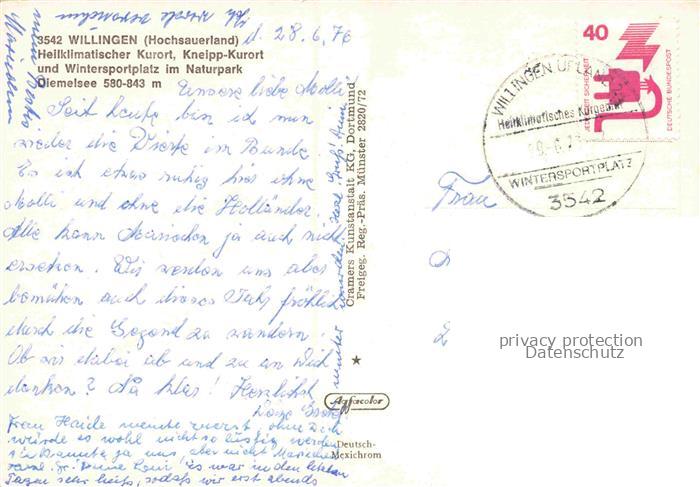 3542 WILLINGEN (Hochsauerland)
Heilklimatischer Kurort, Kneipp-Kurort
und Wintersportplatz im Naturpark
Diemelsee 580-843 m
d. 28.6.76
Unsere liebe Molli!
Seit heute bin ich nun
wieder die Dierte im Bunde.
Es ist etwas ruhig hier ohne
Molli und ohne die Holländer.
Alle kann Mariechen ja auch nicht
ersetzen. Wir werden uns aber
bemühen auch dieses Jahr fröhlich
durch die Gegend zu wandern.
Ob wir dabei ab und zu an Dich
denken? Na klar! Herzlichst
Deine
Frau Heide meinte zuerst, ohne Dich
würde es wohl nicht so lustig werden
sie kannte ja uns, aber nicht
Es war in den letzten
Tagen sehr heiß, sodaß wir erst abends
Cramers Kunstanstalt KG, Dortmund
Freigeg. Reg.-Präs. Münster 2820/72
Agfacolor
Deutsch-
Mexichrom
40
JEDERZEIT SICHERHEIT
DEUTSCHE BUNDESPOST
WILLINGEN UPLAND
Heilklimatisches Kurgebiet
WINTERSPORTPLATZ
3542
Frau
D
L
privacy protection
Datenschutz